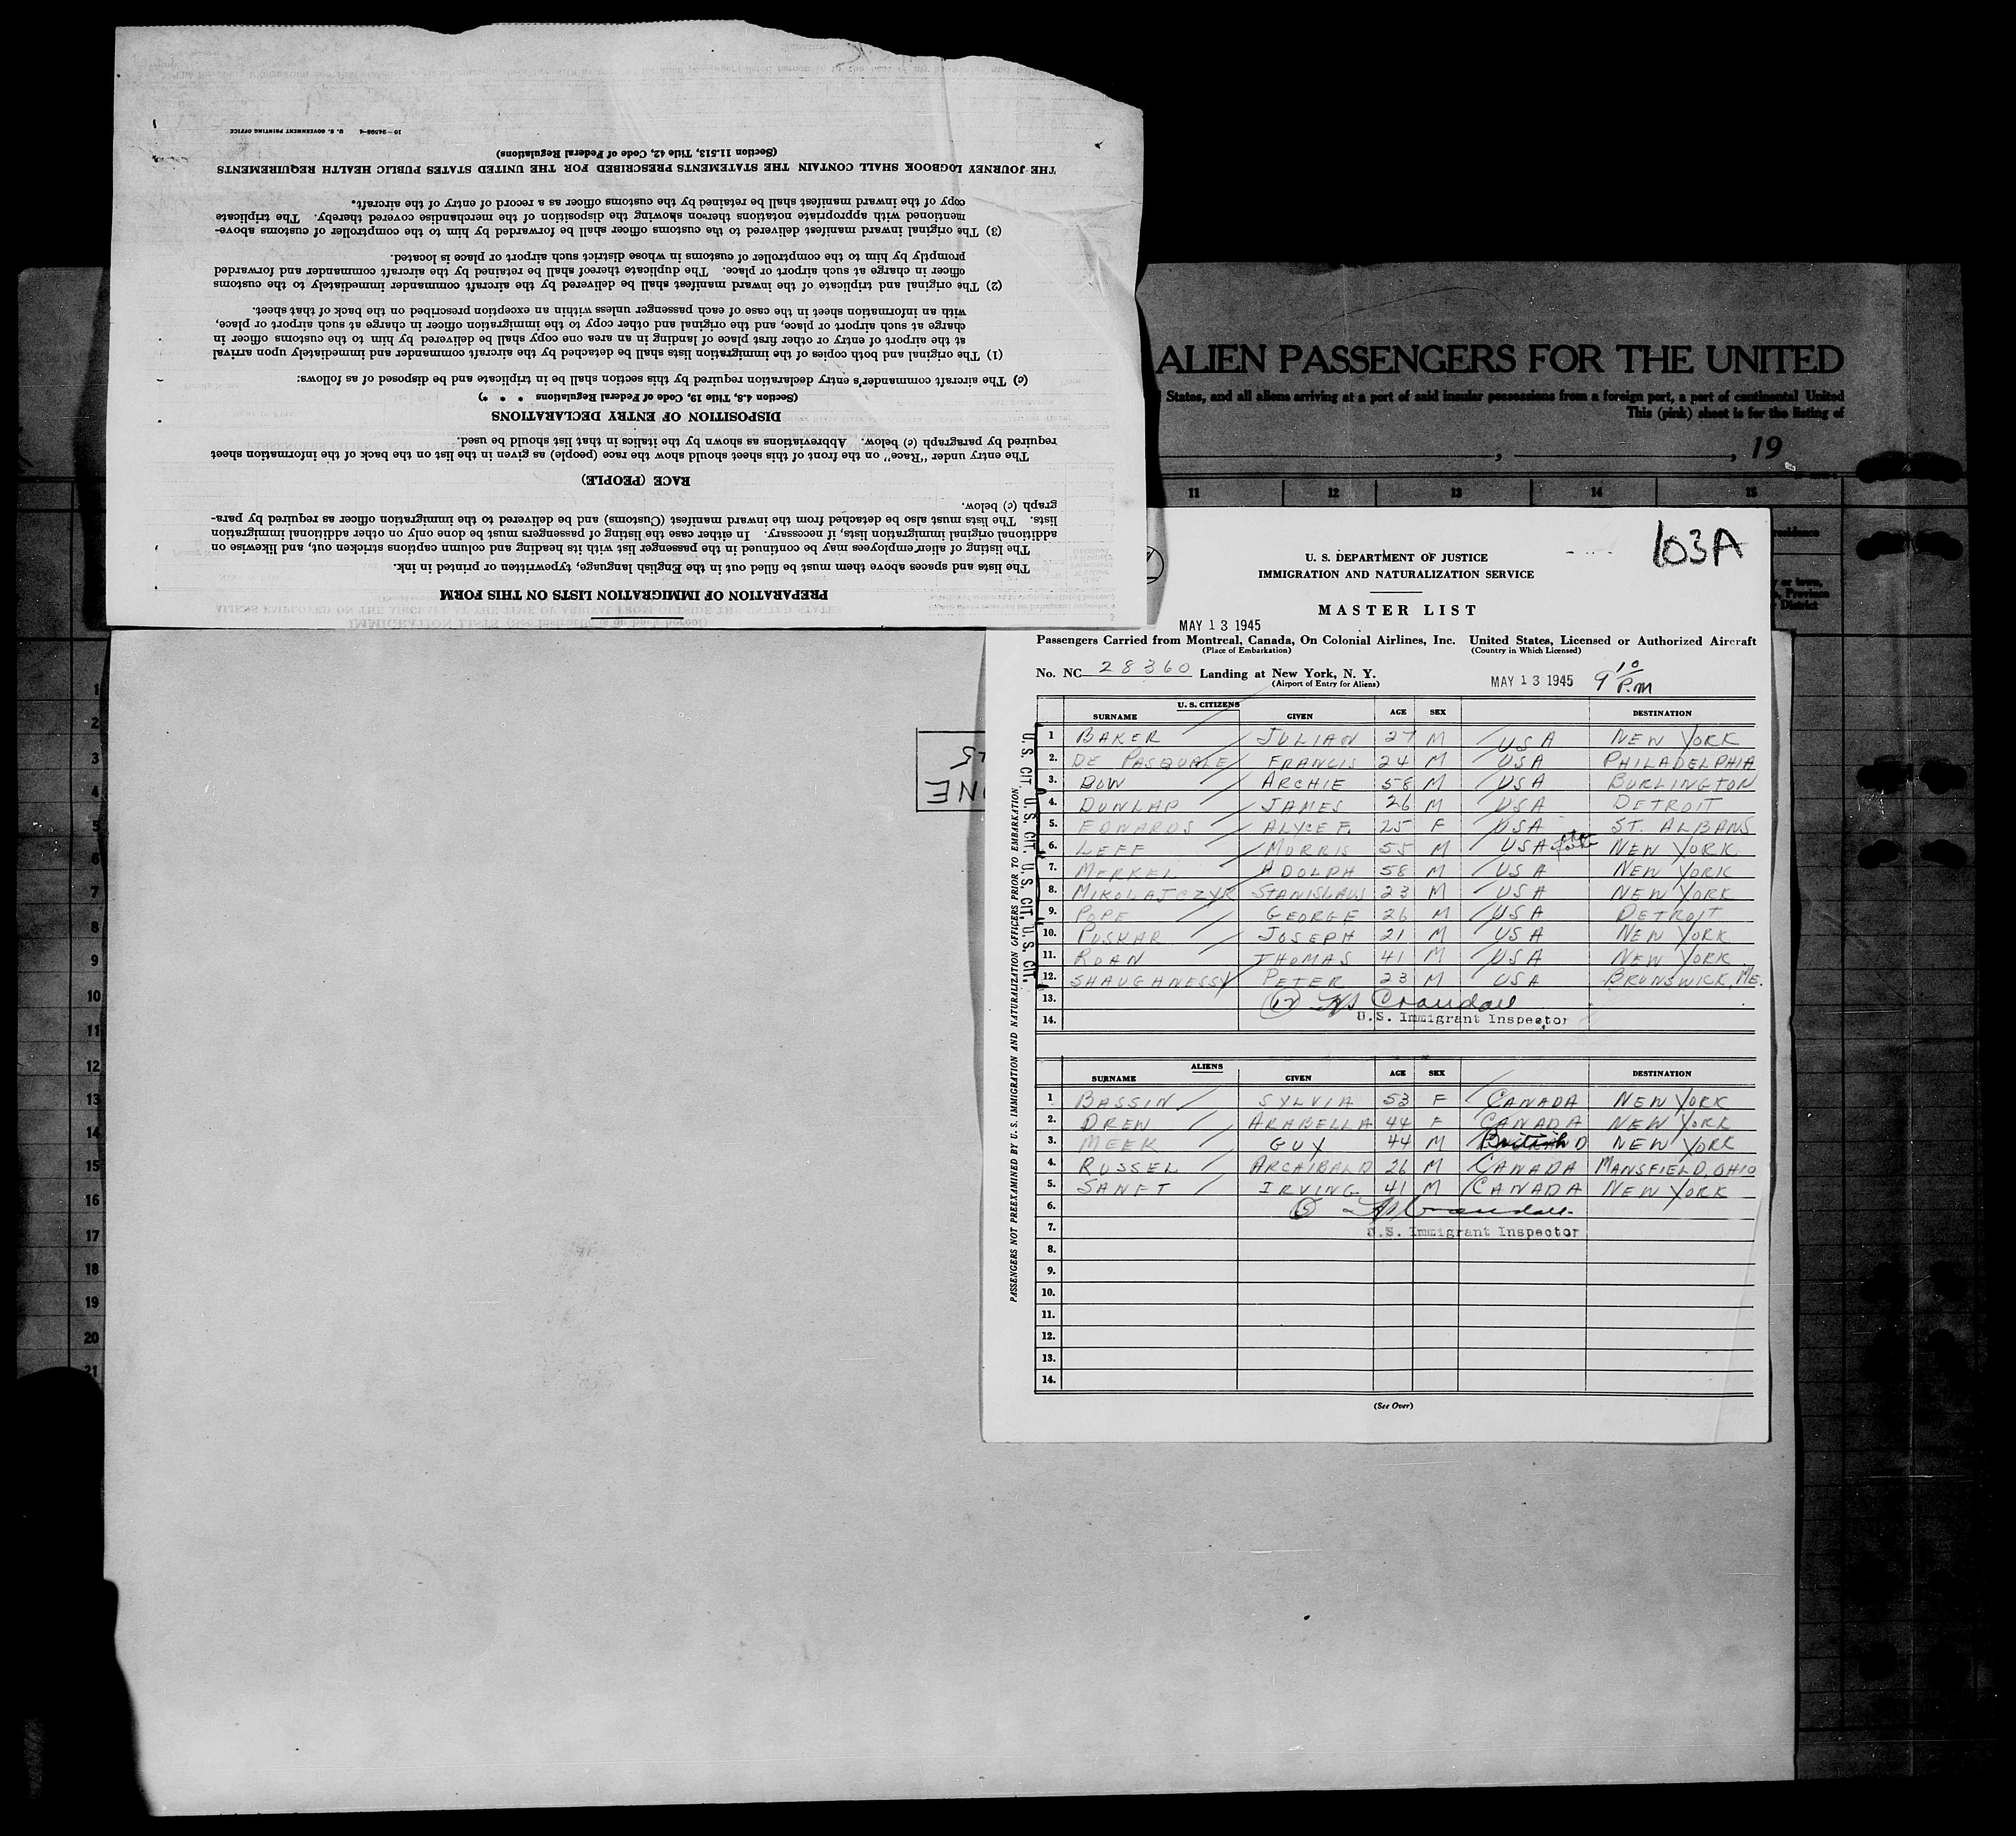 PREPARATION OF IMMIGRATION LISTS ON THIS FORM
The lists and spaces above them must be filled out in the English language, typewritten or printed in ink.
The listing of alien employees may be continued in the passenger list with its heading and column captions stricken out, and likewise on
additional original immigration lists, if necessary. In either case the listing of passengers must be done only on other additional immigration
lists. The lists must also be detached from the inward manifest (Customs) and be delivered to the immigration officer as required by para-
graph (c) below.
RACE (PEOPLE)
The entry under "Race" on the front of this sheet should show the race (people) as given in the list on the back of the information sheet
required by paragraph (c) below. Abbreviations as shown by the italics in that list should be used.
DISPOSITION OF ENTRY DECLARATIONS
(Section 4.8, Title 19, Code of Federal Regulations * * *)
(c) The aircraft commander's entry declaration required by this section shall be in triplicate and be disposed of as follows:
(1) The original and both copies of the immigration lists shall be detached by the aircraft commander and immediately upon arrival
at the airport of entry or other first place of landing in an area one copy shall be delivered by him to the customs officer in
charge at such airport or place, and the original and other copy to the immigration officer in charge at such airport or place,
with an information sheet in the case of each passenger unless within an exception prescribed on the back of that sheet.
(2) The original and triplicate of the inward manifest shall be delivered by the aircraft commander immediately to the customs
officer in charge at such airport or place. The duplicate thereof shall be retained by the aircraft commander and forwarded
promptly by him to the comptroller of customs in whose district such airport or place is located.
(3) The original inward manifest delivered to the customs officer shall be forwarded by him to the comptroller of customs above-
mentioned with appropriate notations thereon showing the disposition of the merchandise covered thereby. The triplicate
copy of the inward manifest shall be retained by the customs officer as a record of entry of the aircraft.
THE JOURNEY LOGBOOK SHALL CONTAIN THE STATEMENTS PRESCRIBED FOR THE UNITED STATES PUBLIC HEALTH REQUIREMENTS
(Section 11.513, Title 42, Code of Federal Regulations)
16—24598-4 U. S. GOVERNMENT PRINTING OFFICE
ALIEN PASSENGERS FOR THE UNITED
States, and all aliens arriving at a port of said insular possessions from a foreign port, a port of continental United
This (pink) sheet is for the listing of
, , 19
11 12 13 14 15
103A
U. S. DEPARTMENT OF JUSTICE
IMMIGRATION AND NATURALIZATION SERVICE
MASTER LIST
MAY 13 1945
Passengers Carried from Montreal, Canada, On Colonial Airlines, Inc. United States, Licensed or Authorized Aircraft
(Place of Embarkation) (Country in Which Licensed)
No. NC 28360 Landing at New York, N. Y. MAY 13 1945 9 10 P.M
(Airport of Entry for Aliens)
U. S. CITIZENS
SURNAME GIVEN AGE SEX DESTINATION
1 BAKER JULIAN 27 M USA NEW YORK
2. DE PASQUALE FRANCIS 24 M USA PHILADELPHIA
3. DOW ARCHIE 58 M USA BURLINGTON
4. DUNLAP JAMES 26 M USA DETROIT
5. EDWARDS ALYCE F. 25 F USA ST. ALBANS
6. LEFF MORRIS 55 M USA NEW YORK
7. MERKEL ADOLPH 58 M USA NEW YORK
8. MIKOLAJCZYK STANISLAUS 23 M USA NEW YORK
9. POPE GEORGE 26 M USA DETROIT
10. PUSKAR JOSEPH 21 M USA NEW YORK
11. ROAN THOMAS 41 M USA NEW YORK
12. SHAUGHNESSY PETER 23 M USA BRUNSWICK, ME.
13. 12 Crandall
14. U.S. Immigrant Inspector
ALIENS
SURNAME GIVEN AGE SEX DESTINATION
1 BASSIN SYLVIA 53 F CANADA NEW YORK
2. DREW ARABELLA 44 F CANADA NEW YORK
3. MEEK GUY 44 M British NEW YORK
4. RUSSEL ARCHIBALD 26 M CANADA MANSFIELD, OHIO
5. SANFT IRVING 41 M CANADA NEW YORK
6. 5 Crandall
7. U.S. Immigrant Inspector
8.
9.
10.
11.
12.
13.
14.
(See Over)
PASSENGERS NOT PREEXAMINED BY U. S. IMMIGRATION AND NATURALIZATION OFFICERS PRIOR TO EMBARKATION
U. S. CIT. U. S. CIT. U. S. CIT. U. S. CIT.
1
2
3
4
5
6
7
8
9
10
11
12
13
14
15
16
17
18
19
20
21